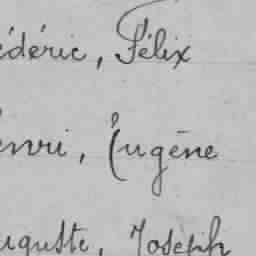 édéric, Félix
enri, Eugène
uguste, Joseph